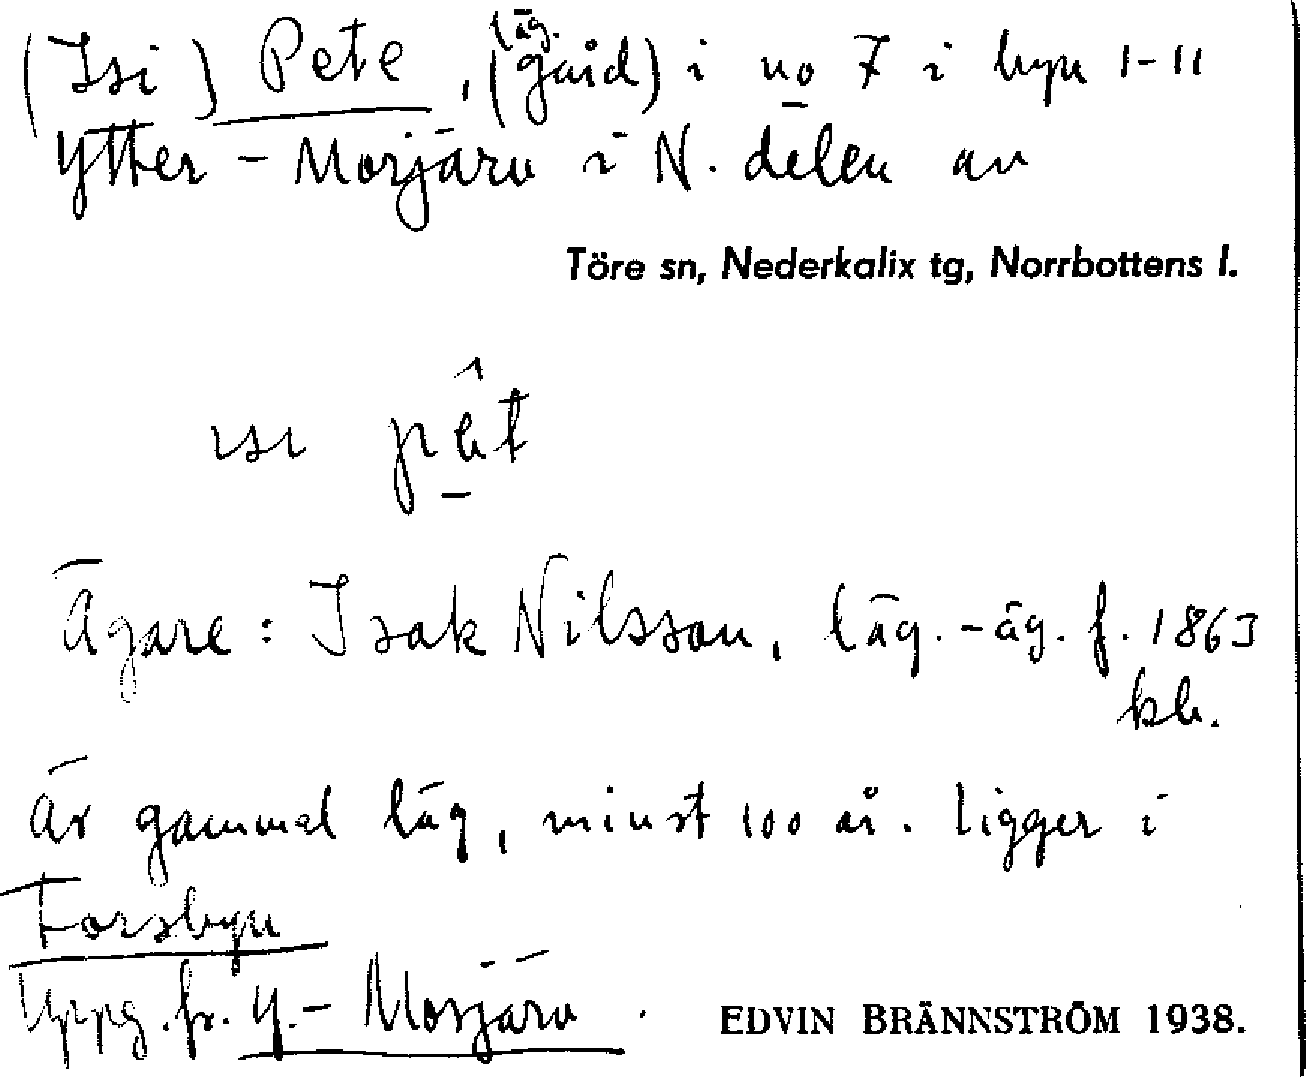 (Isi) Pete, (läg. gård) i no 7 i byn 1-11
Ytter-Morjärv i N. delen av
Töre sn, Nederkalix tg, Norrbottens l.
ısı
Ägare: Isak Nilsson, läg.-äg. f. 1863
kb.
Är gammal läg, minst 100 år. Ligger i
Forsbyn
Uppg. fr. Y.-Morjärv.
EDVIN BRÄNNSTRÖM 1938.